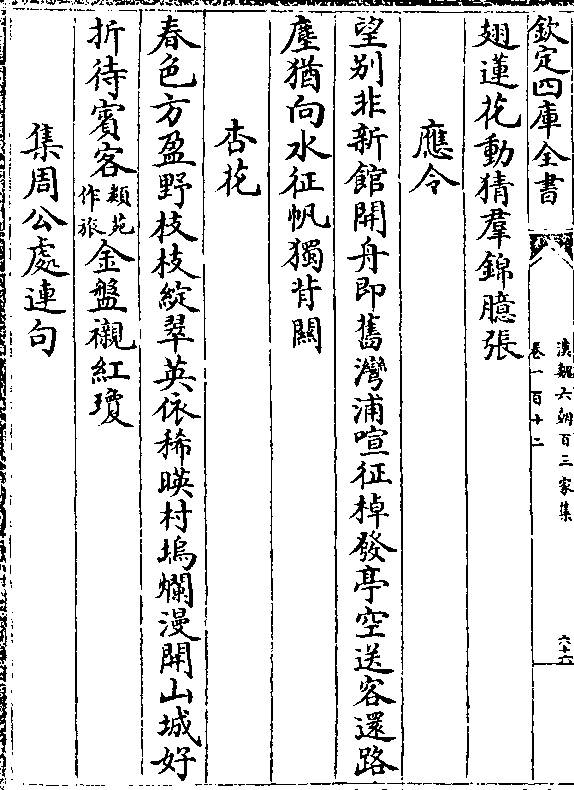 欽定四庫全書
漢魏六朝百三家集
卷一百十二
六十六
翅蓮花動猜羣錦臆張
應令
望别非新館開舟即舊灣浦喧征棹發亭空送客還路
塵猶向水征帆獨背關
杏花
春色方盈野枝枝綻翠英依稀暎村塢爛漫開山城好
折待賓客類苑作旅金盤襯紅瓊
集周公處連句